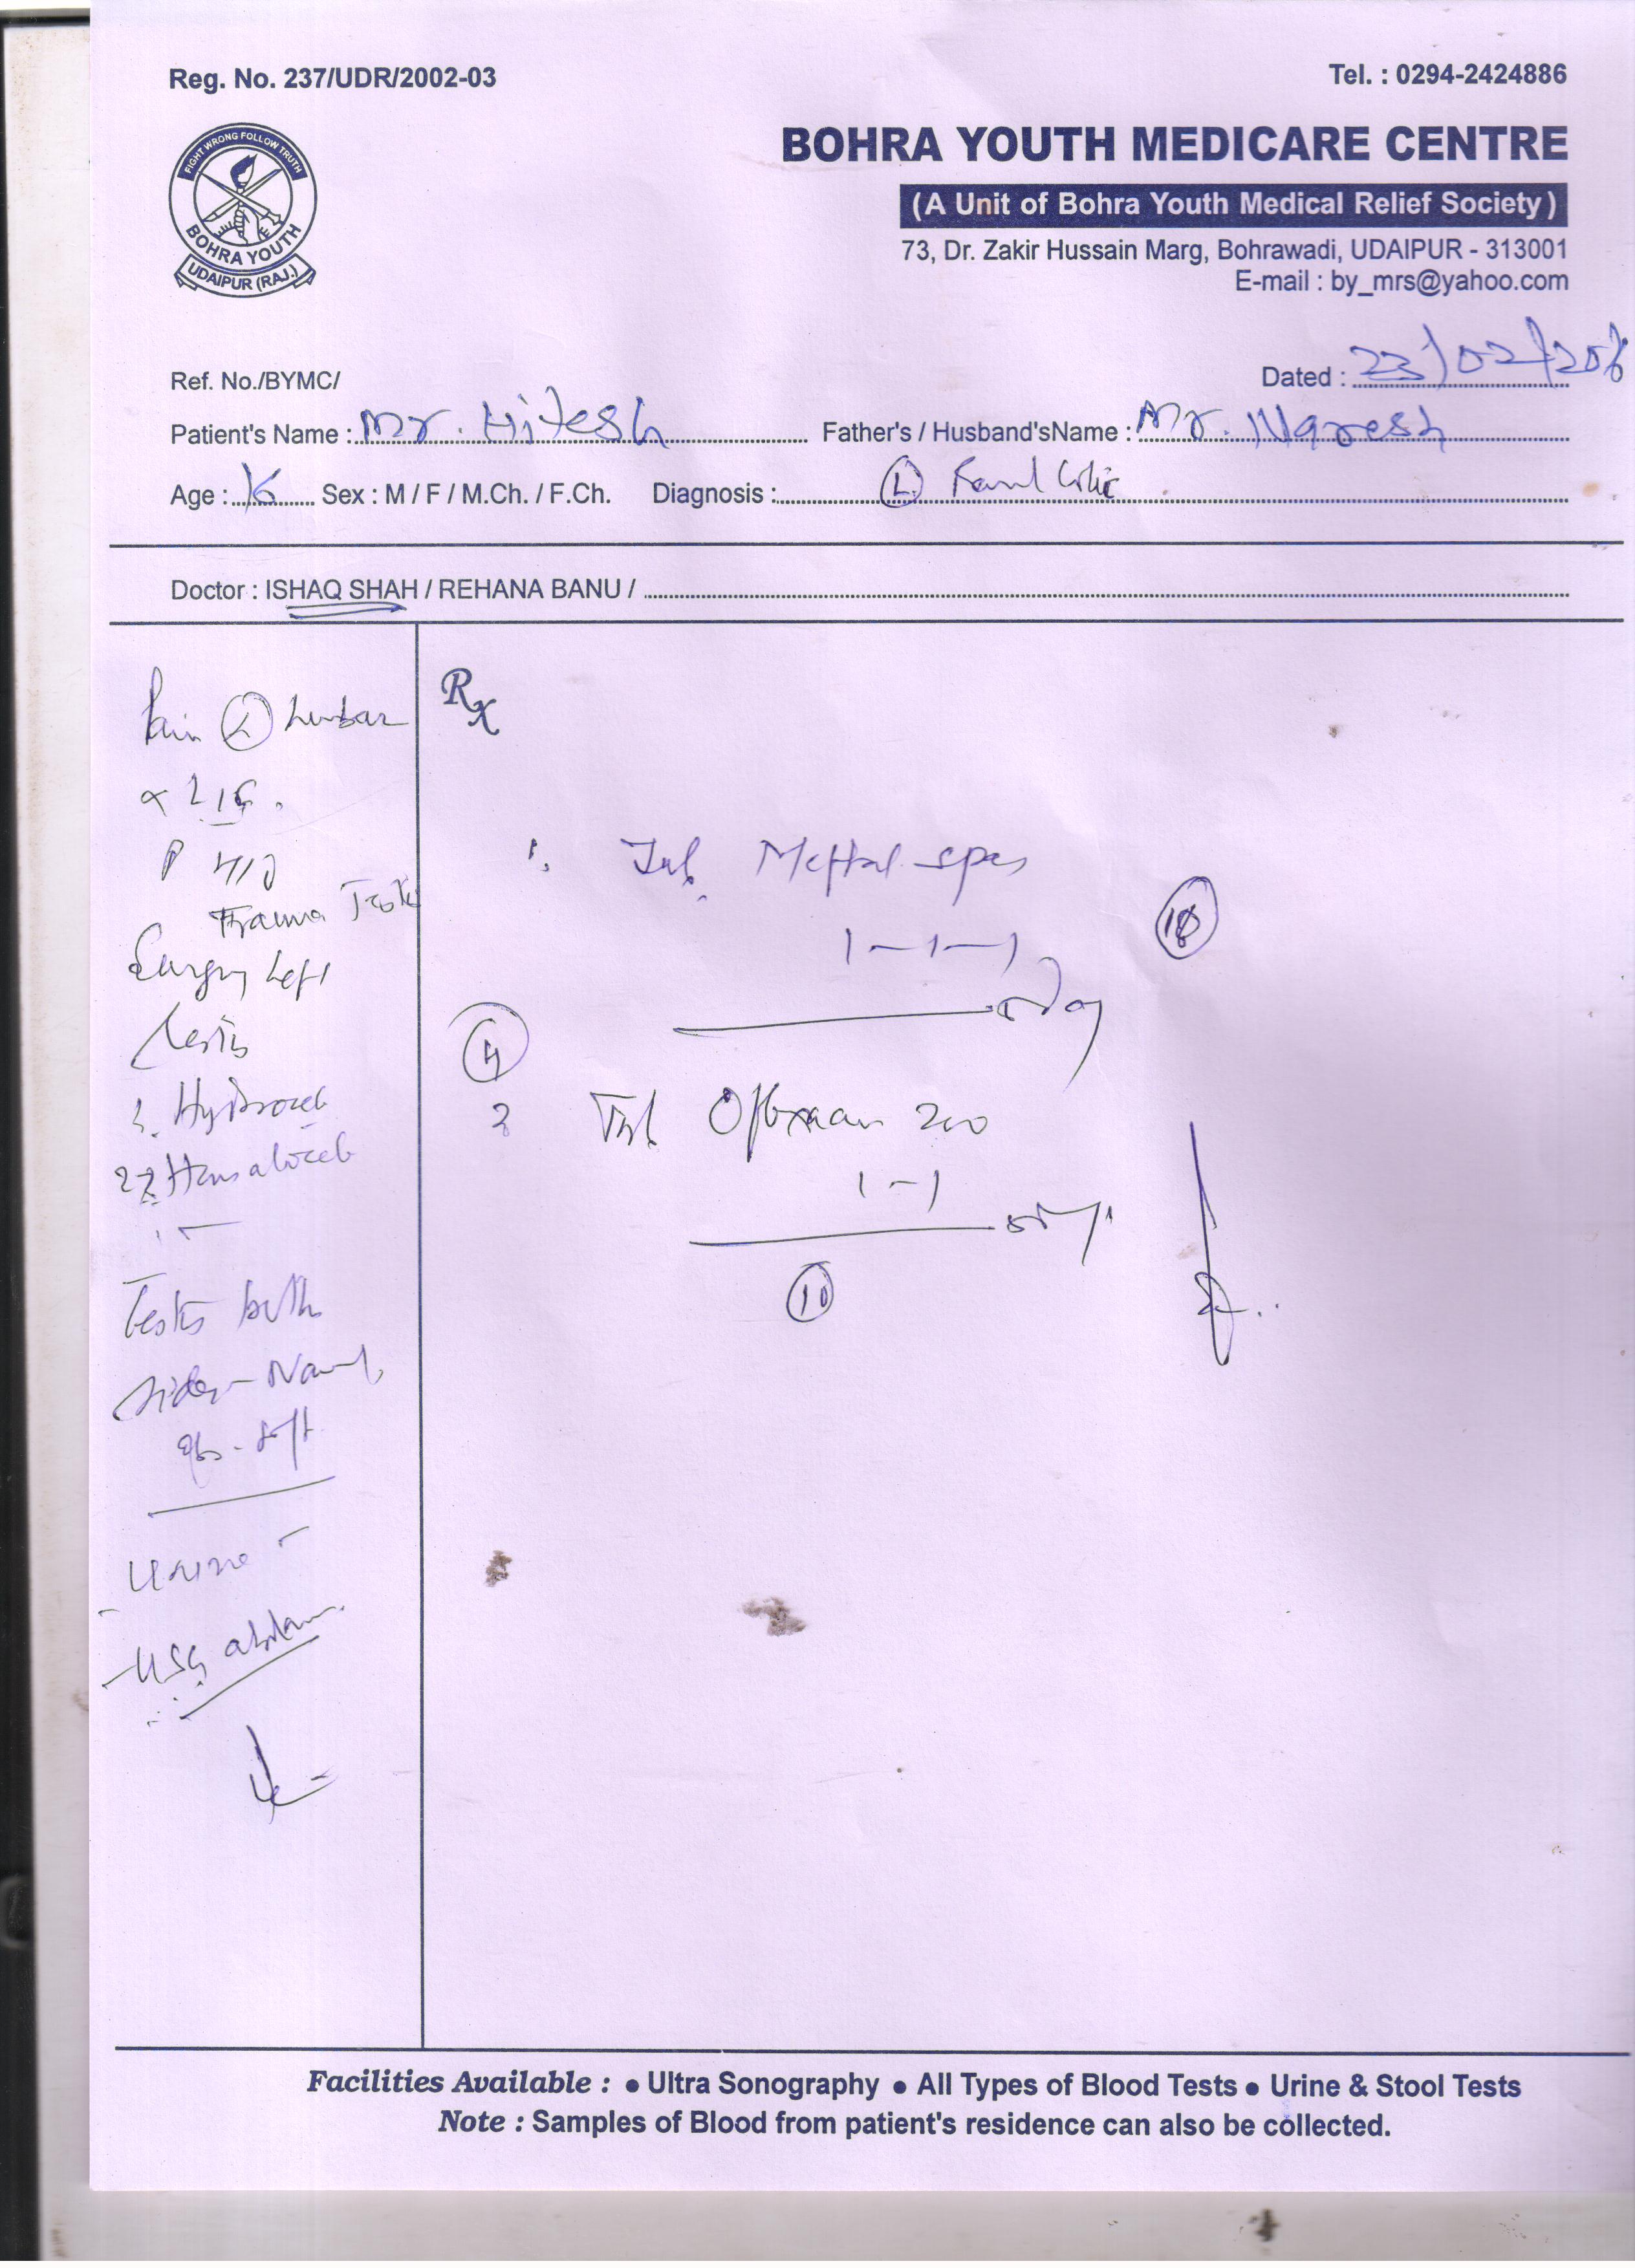 Reg. No. 237/UDR/2002-03
Tel. : 0294-2424886
FIGHT WRONG FOLLOW TRUTH
BOHRA YOUTH
UDAIPUR (RAJ.)
BOHRA YOUTH MEDICARE CENTRE
(A Unit of Bohra Youth Medical Relief Society)
73, Dr. Zakir Hussain Marg, Bohrawadi, UDAIPUR - 313001
E-mail : by_mrs@yahoo.com
Ref. No./BYMC/
Dated : 23/02/
Patient's Name : Mr. Hitesh Father's / Husband'sName : Mr. Naresh
Age : 16 Sex : M / F / M.Ch. / F.Ch. Diagnosis : (L) Renal Colic
Doctor : ISHAQ SHAH / REHANA BANU /
Rx
Pain (L) Lumbar
P H/O
Trauma Testis
Surgery Left
Testis
1. Hydrocele
2. Hematocele
Testis both
sides - Normal
soft
Urine -
- USG abdomen
1. Tab. Meftal-spas
1-1-1
18
2 Tab. Ofloxacin 200
1-1
10
Facilities Available : • Ultra Sonography • All Types of Blood Tests • Urine & Stool Tests
Note : Samples of Blood from patient's residence can also be collected.